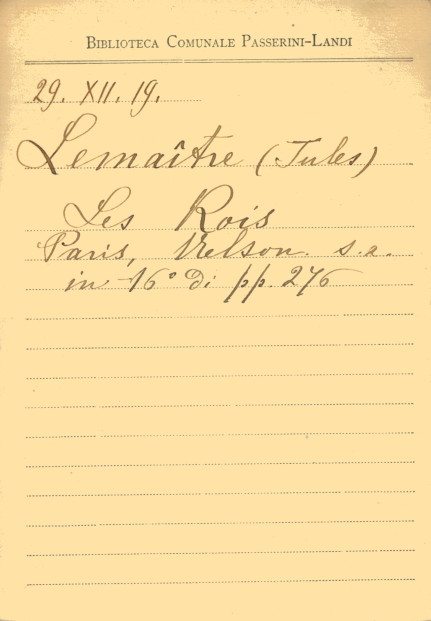 BIBLIOTECA COMUNALE PASSERINI-LANDI
29. XII. 19.
Lemaître (Jules)
Les Rois
Paris, Nelson. s.a.
in 16° di pp. 276